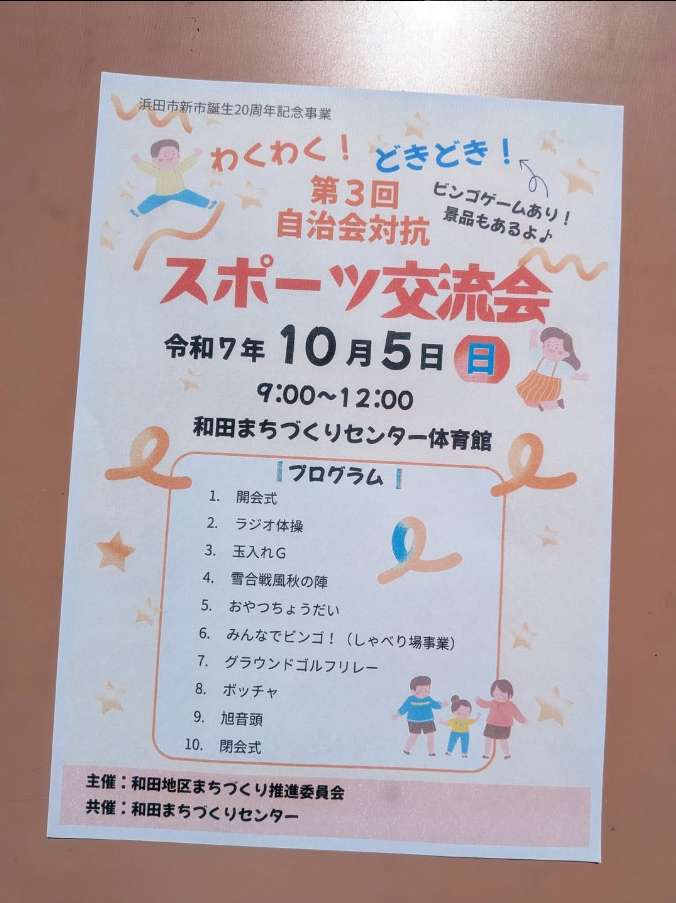 浜田市新市誕生20周年記念事業
わくわく！ どきどき！
ビンゴゲームあり！
景品もあるよ♪
第3回
自治会対抗
スポーツ交流会
令和7年 10月5日 日
9:00～12:00
和田まちづくりセンター体育館
プログラム
1. 開会式
2. ラジオ体操
3. 玉入れG
4. 雪合戦風秋の陣
5. おやつちょうだい
6. みんなでビンゴ！（しゃべり場事業）
7. グラウンドゴルフリレー
8. ボッチャ
9. 旭音頭
10. 閉会式
主催：和田地区まちづくり推進委員会
共催：和田まちづくりセンター